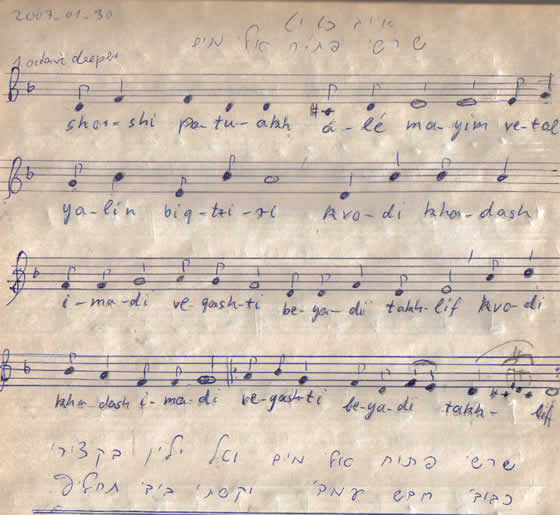 2007-01-30
איוב כט יט
שרשי פתוח אלי מים
1 octave deeper
shor-shi pa-tu-akh á-lé ma-yim ve-tal
ya-lin biq-tzi-ri kvo-di kha-dash
i-ma-di ve-qash-ti be-ya-di takh-lif kvo-di
kha-dash i-ma-di ve-qash-ti be-ya-di takh-lif
שרשי פתוח אלי מים וטל ילין בקצירי
כבודי חדש עמדי וקשתי בידי תחליף